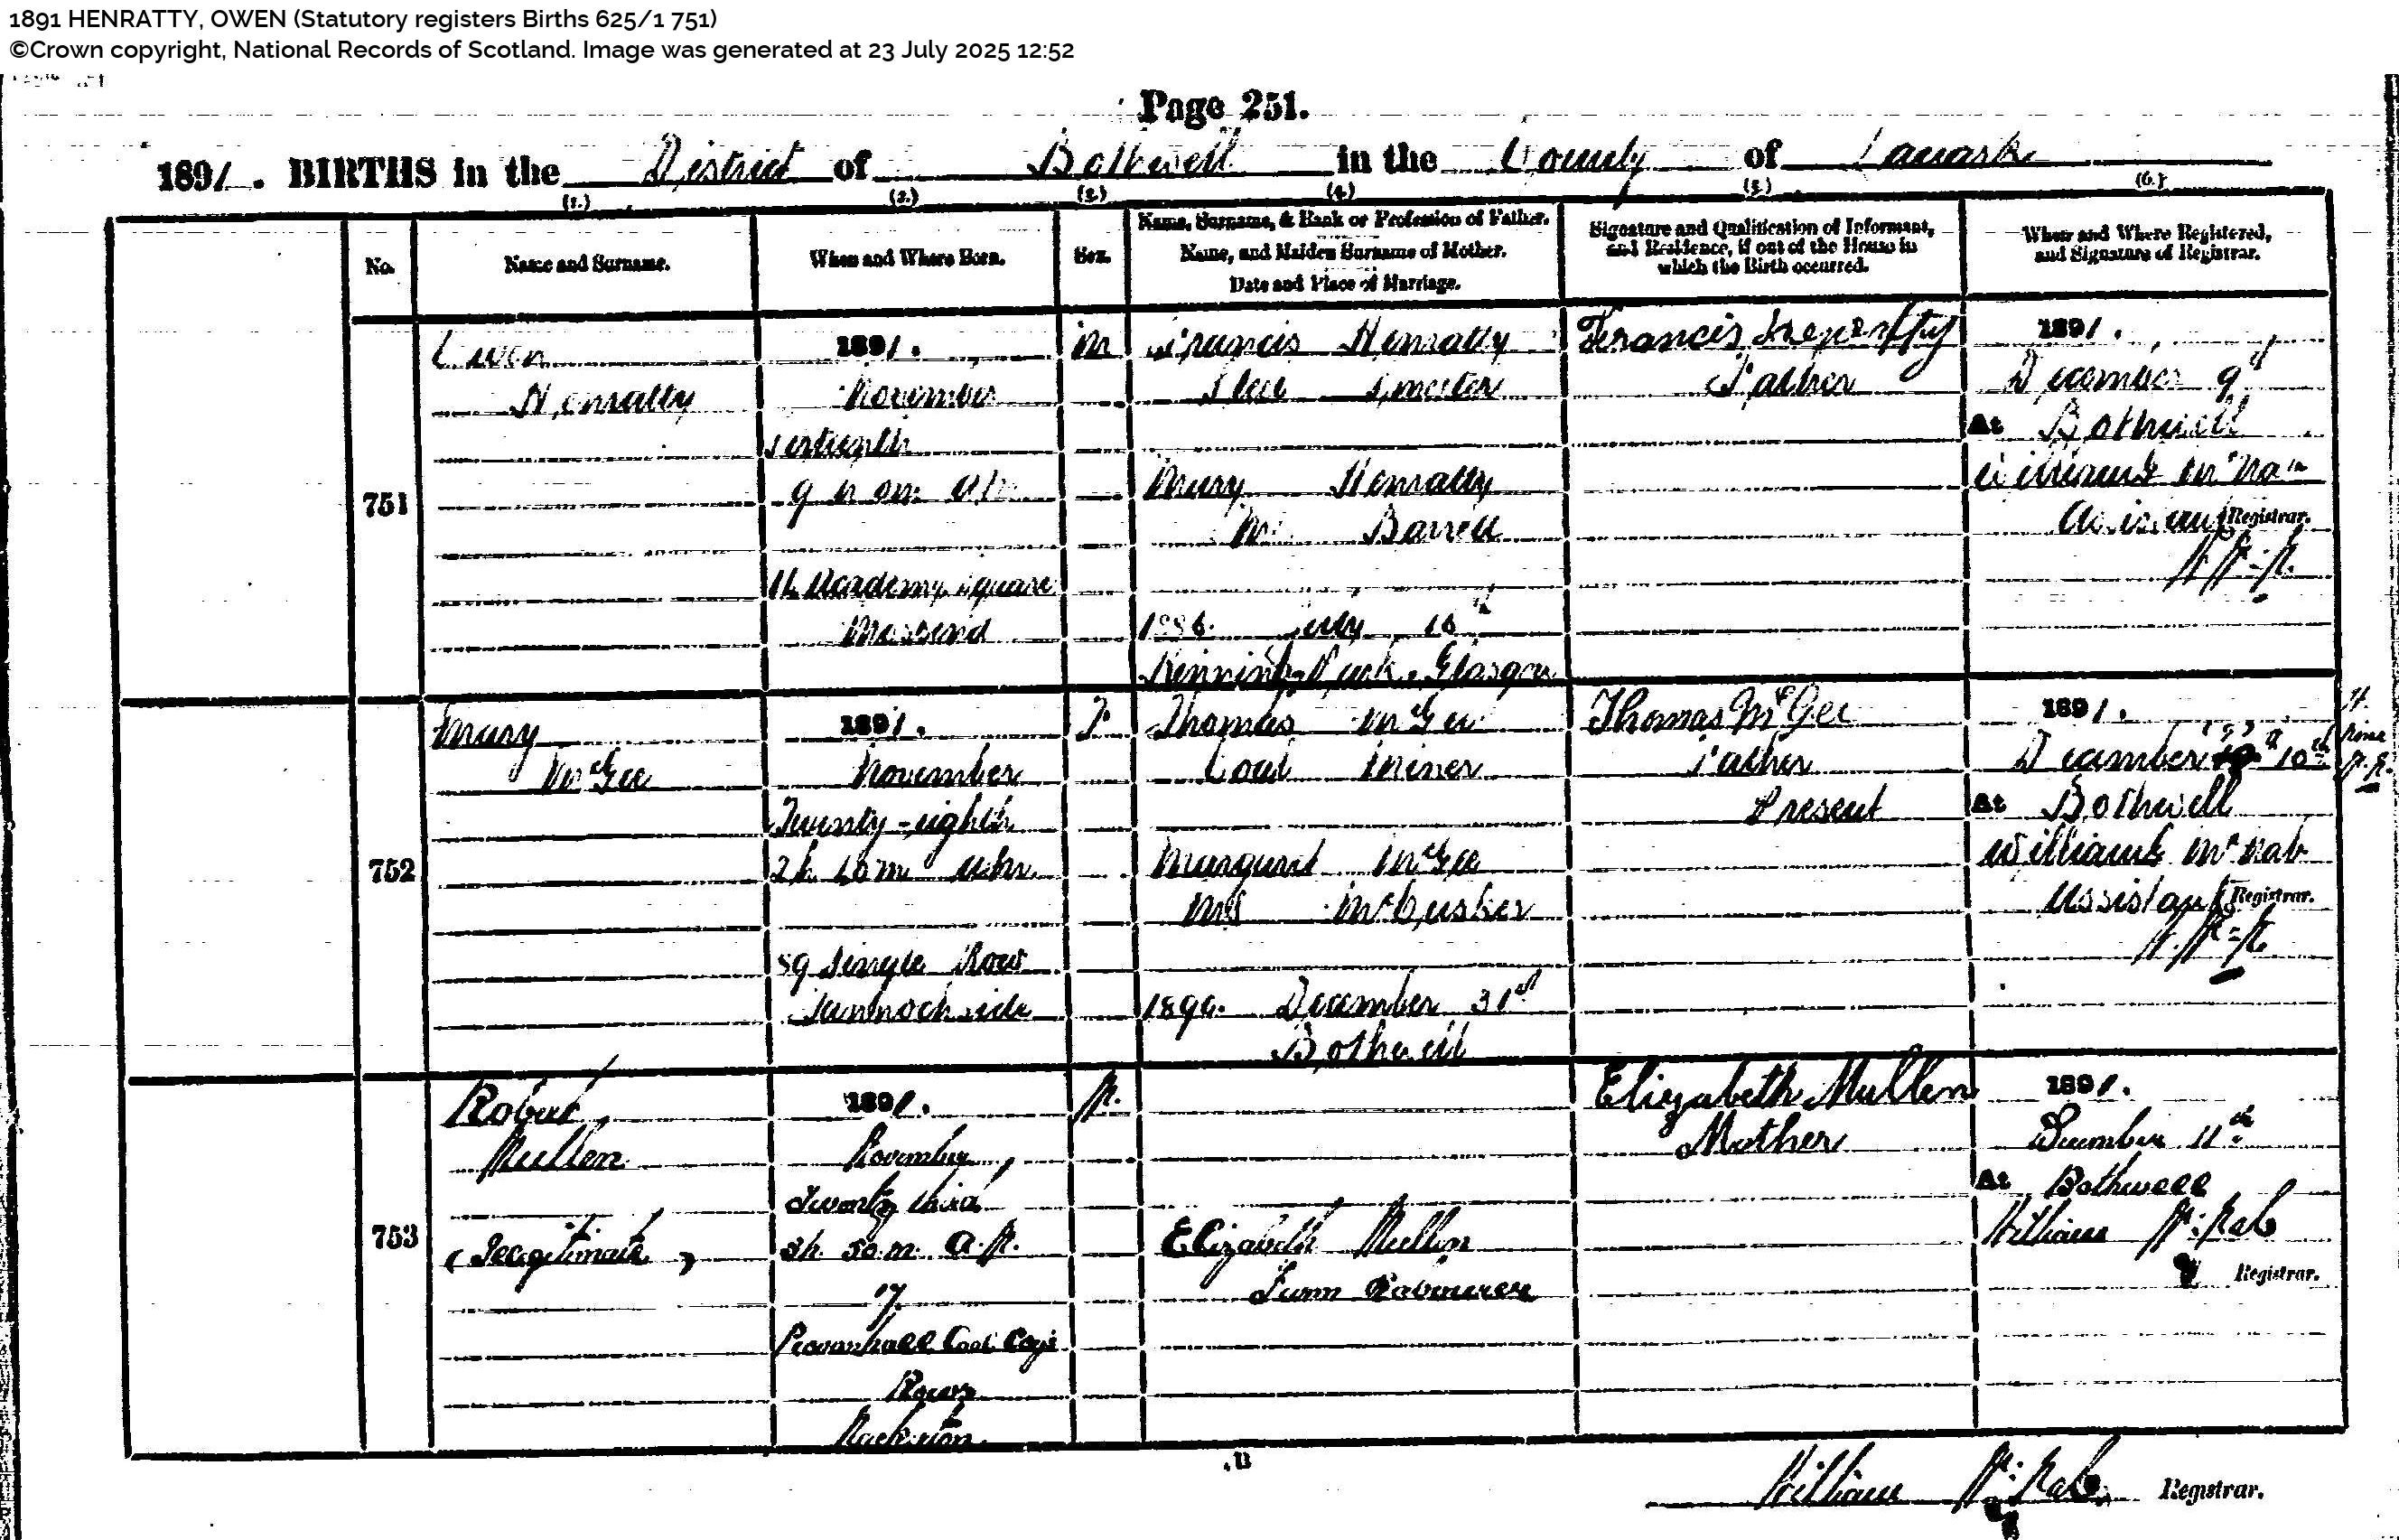 1891 HENRATTY, OWEN (Statutory registers Births 625/1 751)
©Crown copyright, National Records of Scotland. Image was generated at 23 July 2025 12:52
Page 251.
1891. BIRTHS in the District of Bothwell in the County of Lanark
(1.) (2.) (3.) (4.) (5.) (6.)
No.
Name and Surname.
When and Where Born.
Sex.
Name, Surname, & Rank or Profession of Father.
Name, and Maiden Surname of Mother.
Date and Place of Marriage.
Signature and Qualification of Informant,
and Residence, if out of the House in
which the Birth occurred.
When and Where Registered,
and Signature of Registrar.
751
Owen
Henratty
1891.
November
9 h 0m
Academy Square
Mossend
M
Francis Henratty
Steel Smelter
Mary Henratty
M. Barrett
1886. July 16th
Kinning Park, Glasgow
Francis
Father
1891.
December 9th
At Bothwell
William McNab
Assistant Registrar.
752
Mary
McGee
1891.
November
Twenty-eighth
2h
59 Single Row
Tannochside
F
Thomas McGee
Coal Miner
Margaret McGee
MS McCusker
1890. December 31st
Bothwell
Thomas McGee
Father
Present
1891.
December 10th
At Bothwell
William McNab
Assistant Registrar.
753
Robert
Mullen
(Illegitimate)
1891.
November
Twenty third
3h. 50m. A.M.
17
Provanhall Coal Coy's
Rows
M.
Elizabeth Mullen
Farm Labourer
Elizabeth Mullen
Mother
1891.
December 11th
At Bothwell
William McNab
Registrar.
William McNab Registrar.